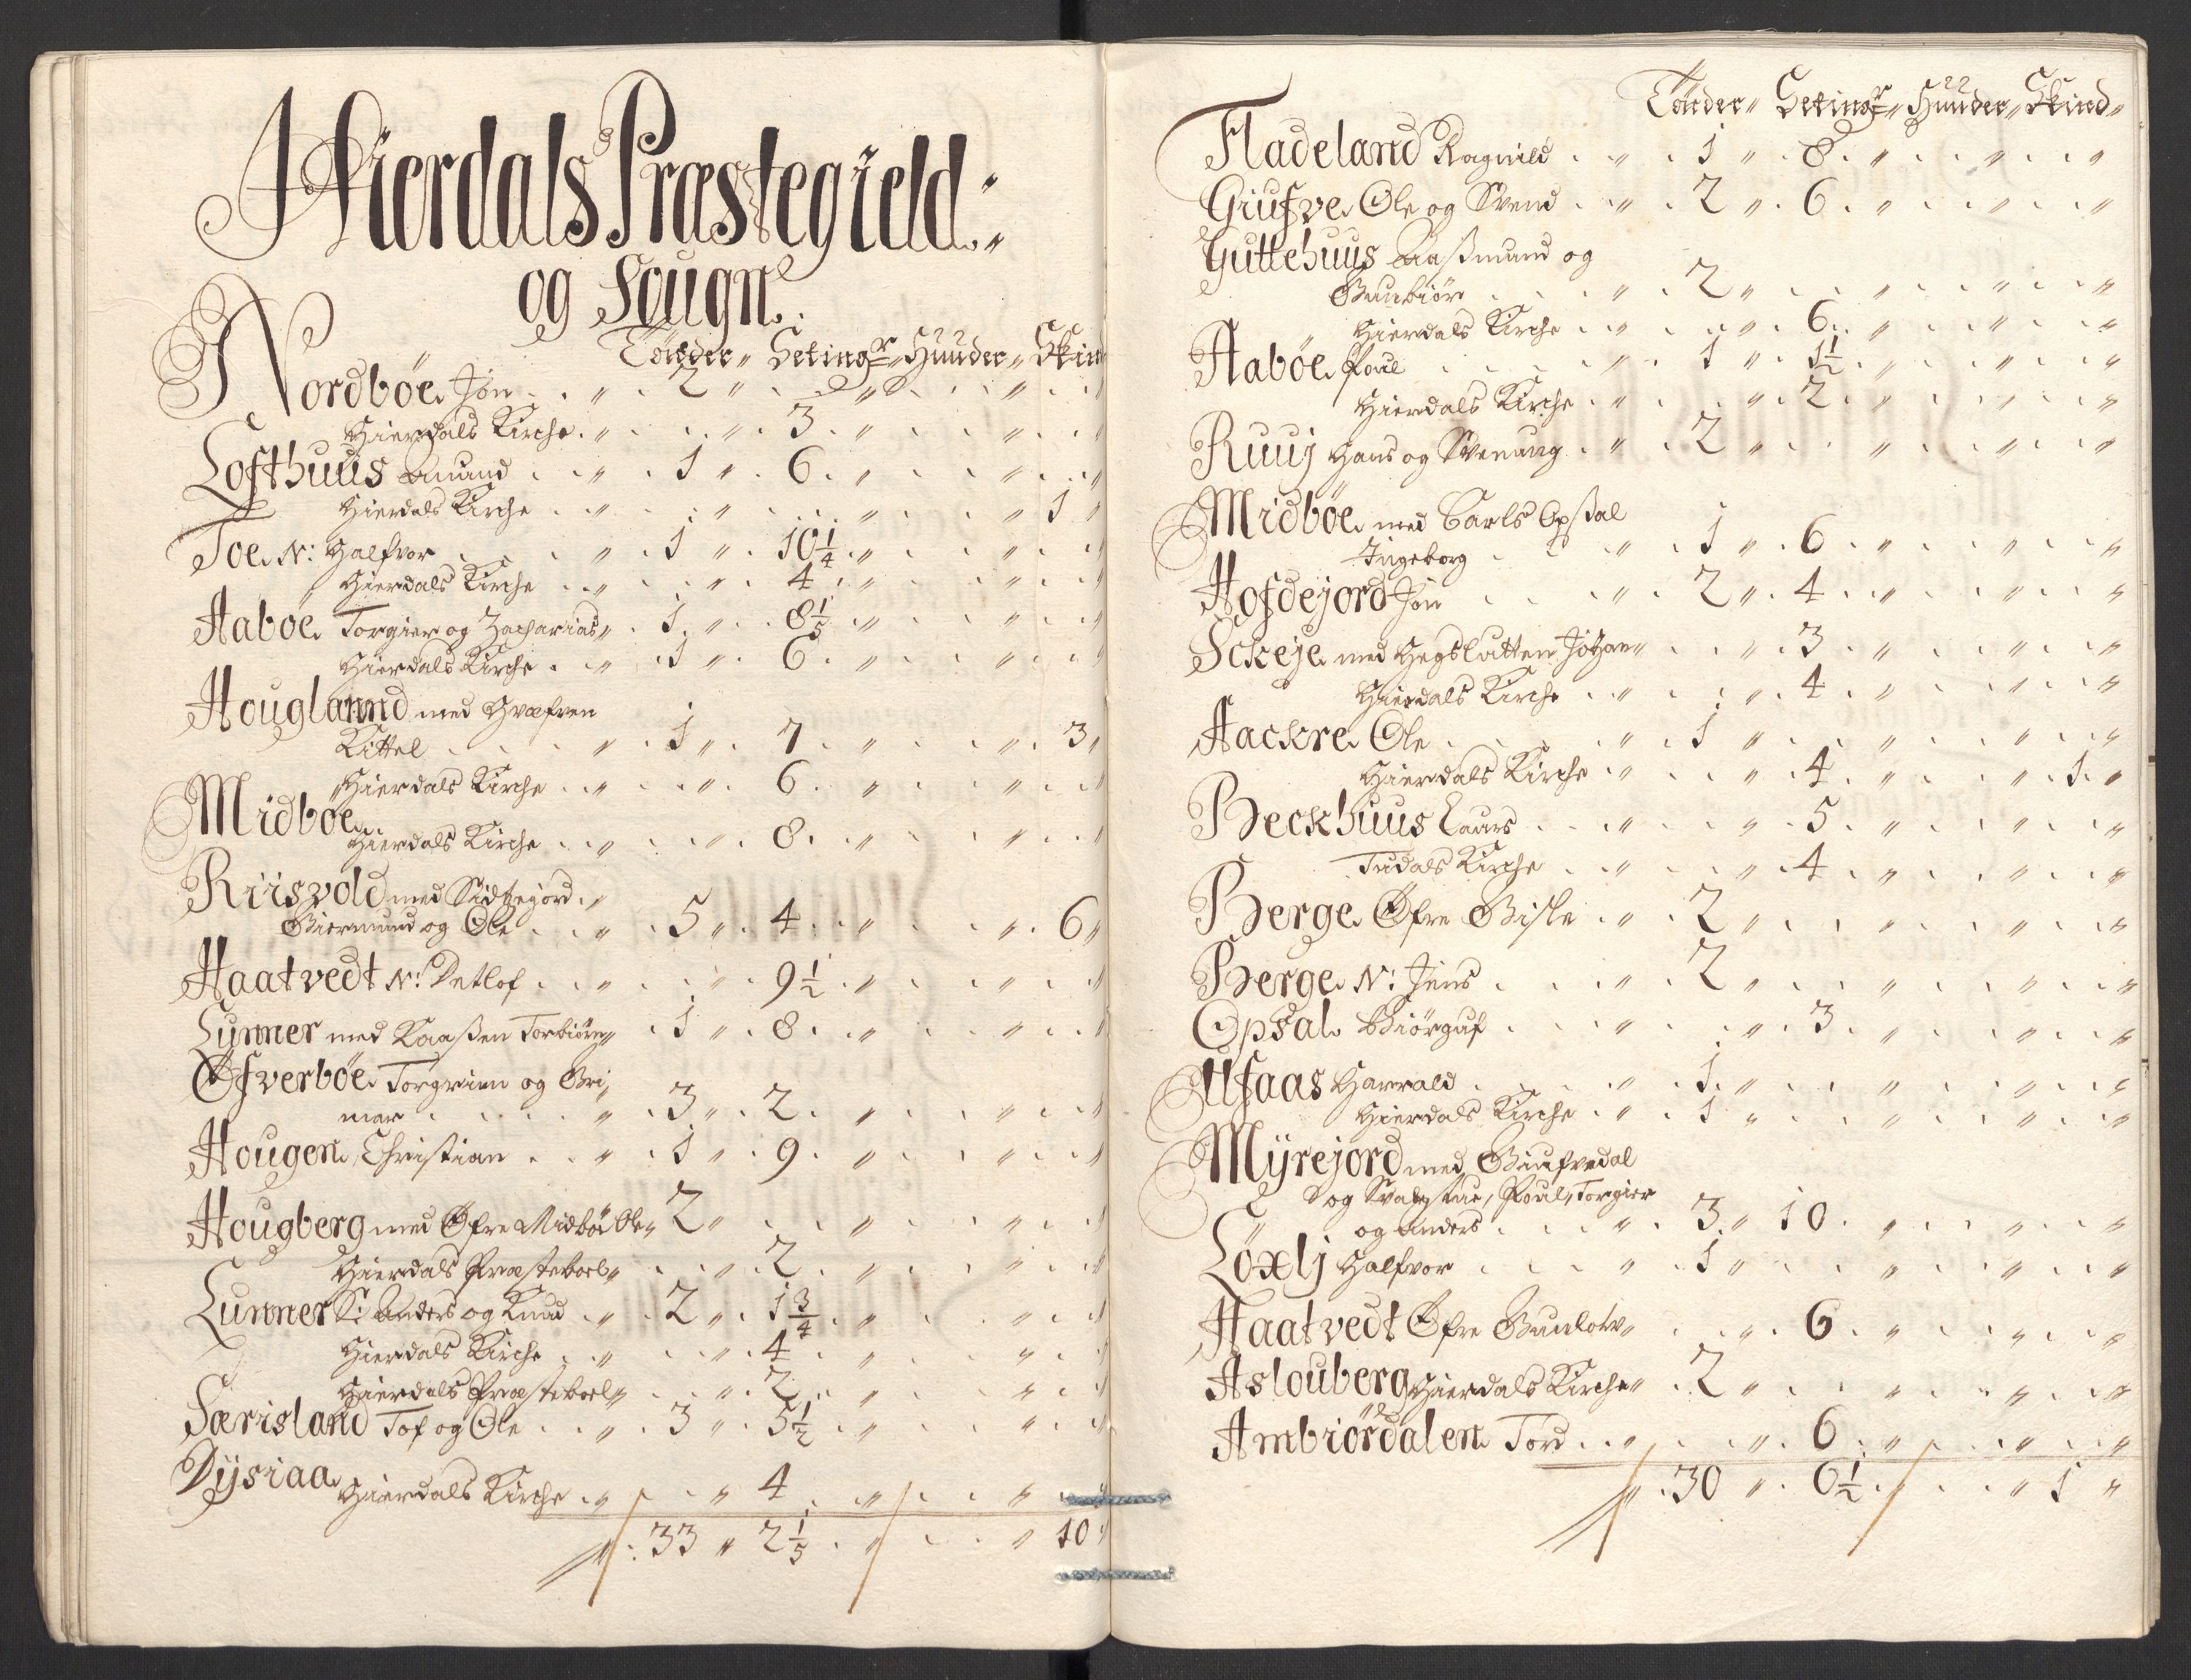 Hierdals Præstegield
og Sougn
Tønder Setingr Huuder Skin
Nordbøe Jon 2
Hierdals Kirche 3
Lofthuus Amund 1 6
Hierdals Kirche 1
Toe N: Halfvor 1 10 1/4
Hierdals Kirche 4
Aabøe Torgier og Zacharias 1 8 1/5
Hierdals Kirche 1 6
Houglannd med Græfven
Kittel 1 7 3
Hierdals Kirche 6
Midbøe
Hierdals Kirche 8
Riisvold med Sidtzejord
Giermund og Ole 5 4 6
Haatvedt N: Detlof 9 1/2
Lynner med Kaaßen Torbiørn 1 8
Øfverbøe Torgrim og Gri
mar 3 2
Hougen Christian 1 9
Hougberg med Øfre Midbøe Ole 2
Hierdals Præsteboel 2
Lunner S: Anders og Knud 2 1 3/4
Hierdals Kirche 4
Hierdals Præsteboel 2
Særisland Tof og Ole 3 5 1/2
Dysiaa
Hierdals Kirche 4
33 2 1/5 10
Tønder Setingr Huuder Skind
Fladeland Ragnild 1 8
Giufve Ole og Svend 2 6
Guttehuus Aaßmund og
Gunbiør 2
Hierdals Kirche 6
Aabøe Poul 1 1 1/2
Hierdals Kirche 2
Ruuj Hans og Svenung 2
Midbøe med Carls Opsal
Ingeborg 1 6
Hofdejord Jon 2 4
Sckeje med Hegsletten Johan 3
Hierdals Kirche 4
Aackre Ole 1
Hierdals Kirche 4 1
Beckhuus Laurs 5
Tudals Kirche 4
Berge Øfre Gisle 2
Berge N: Jens 2
Opsal Biørguf 3
Ufaas Harrald 1
Hierdals Kirche 1
Myrejord med Giufvedal
og Poul, Torgier
og Anders 3 10
Løxlj Halfvor 1
Haatvedt Øfre Gunlov 6
Aslouberg Hierdals Kirche 2
Ambiørdalen Tord 6
30 6 1/2 1